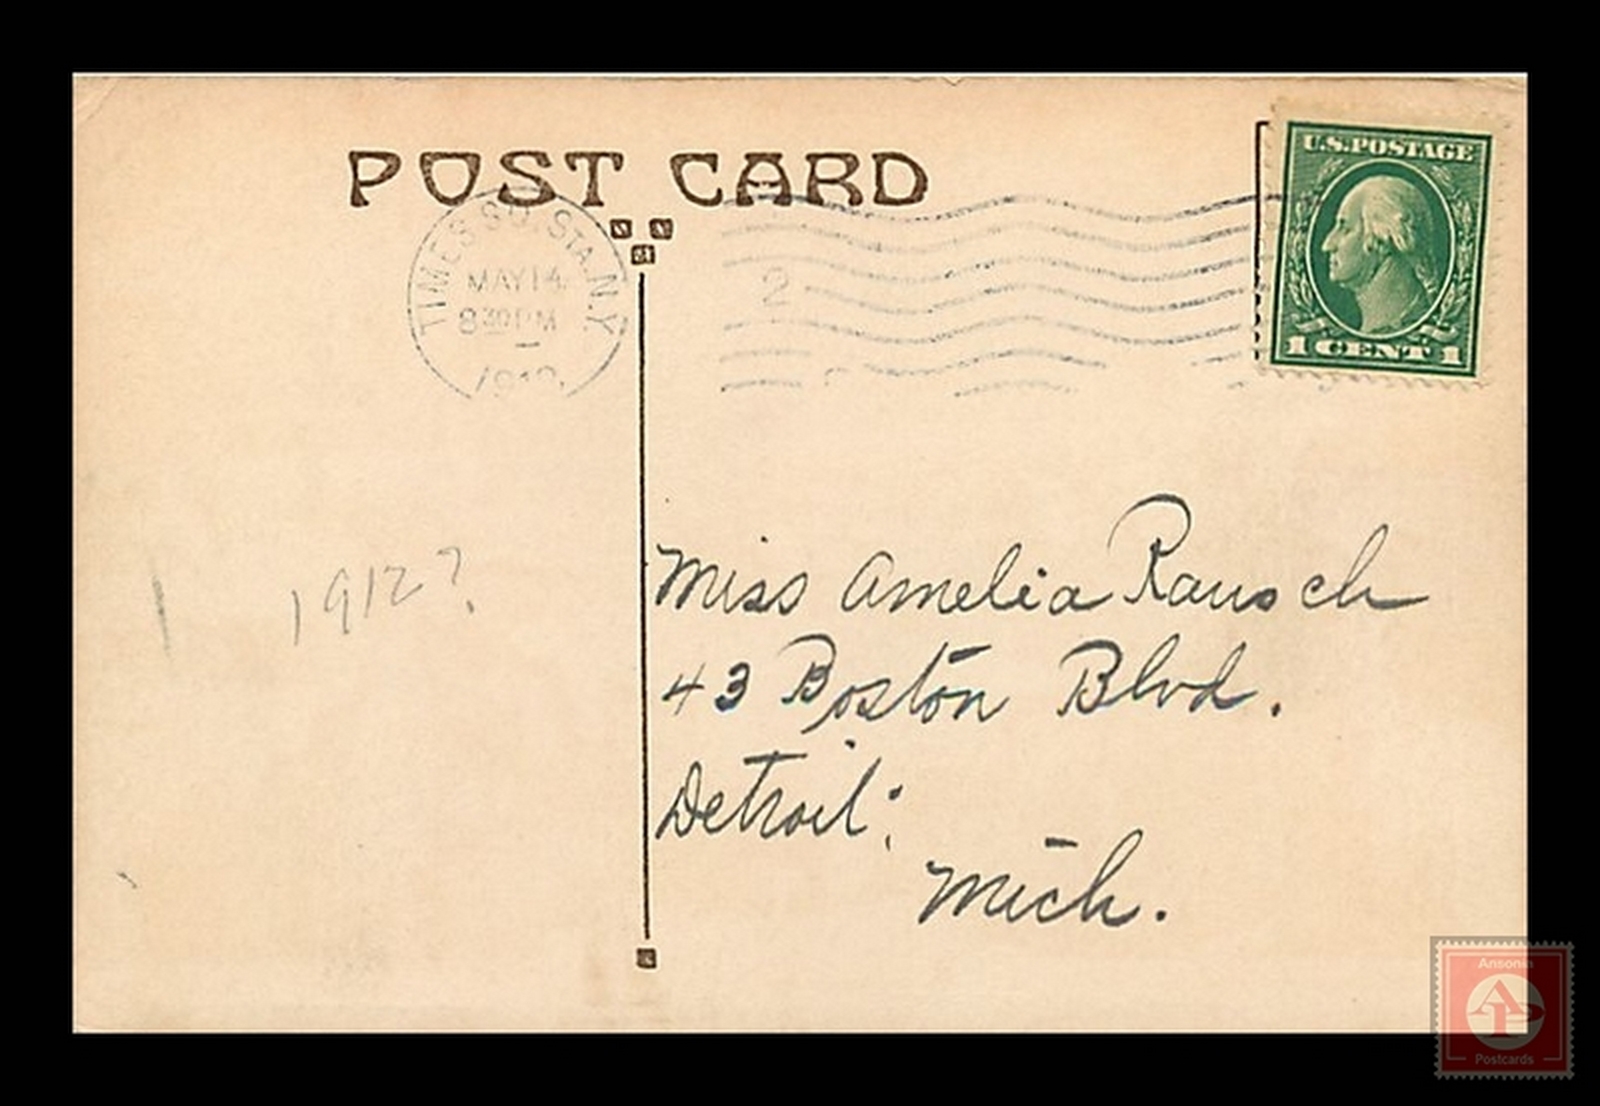 POST CARD
TIMES SQ. STA. N.Y.
MAY 14
8 30 PM
2
U.S. POSTAGE
1 CENT 1
1912?
Miss Amelia Rausch
43 Boston Blvd.
Detroit,
Mich.
Ansonia
AP
Postcards